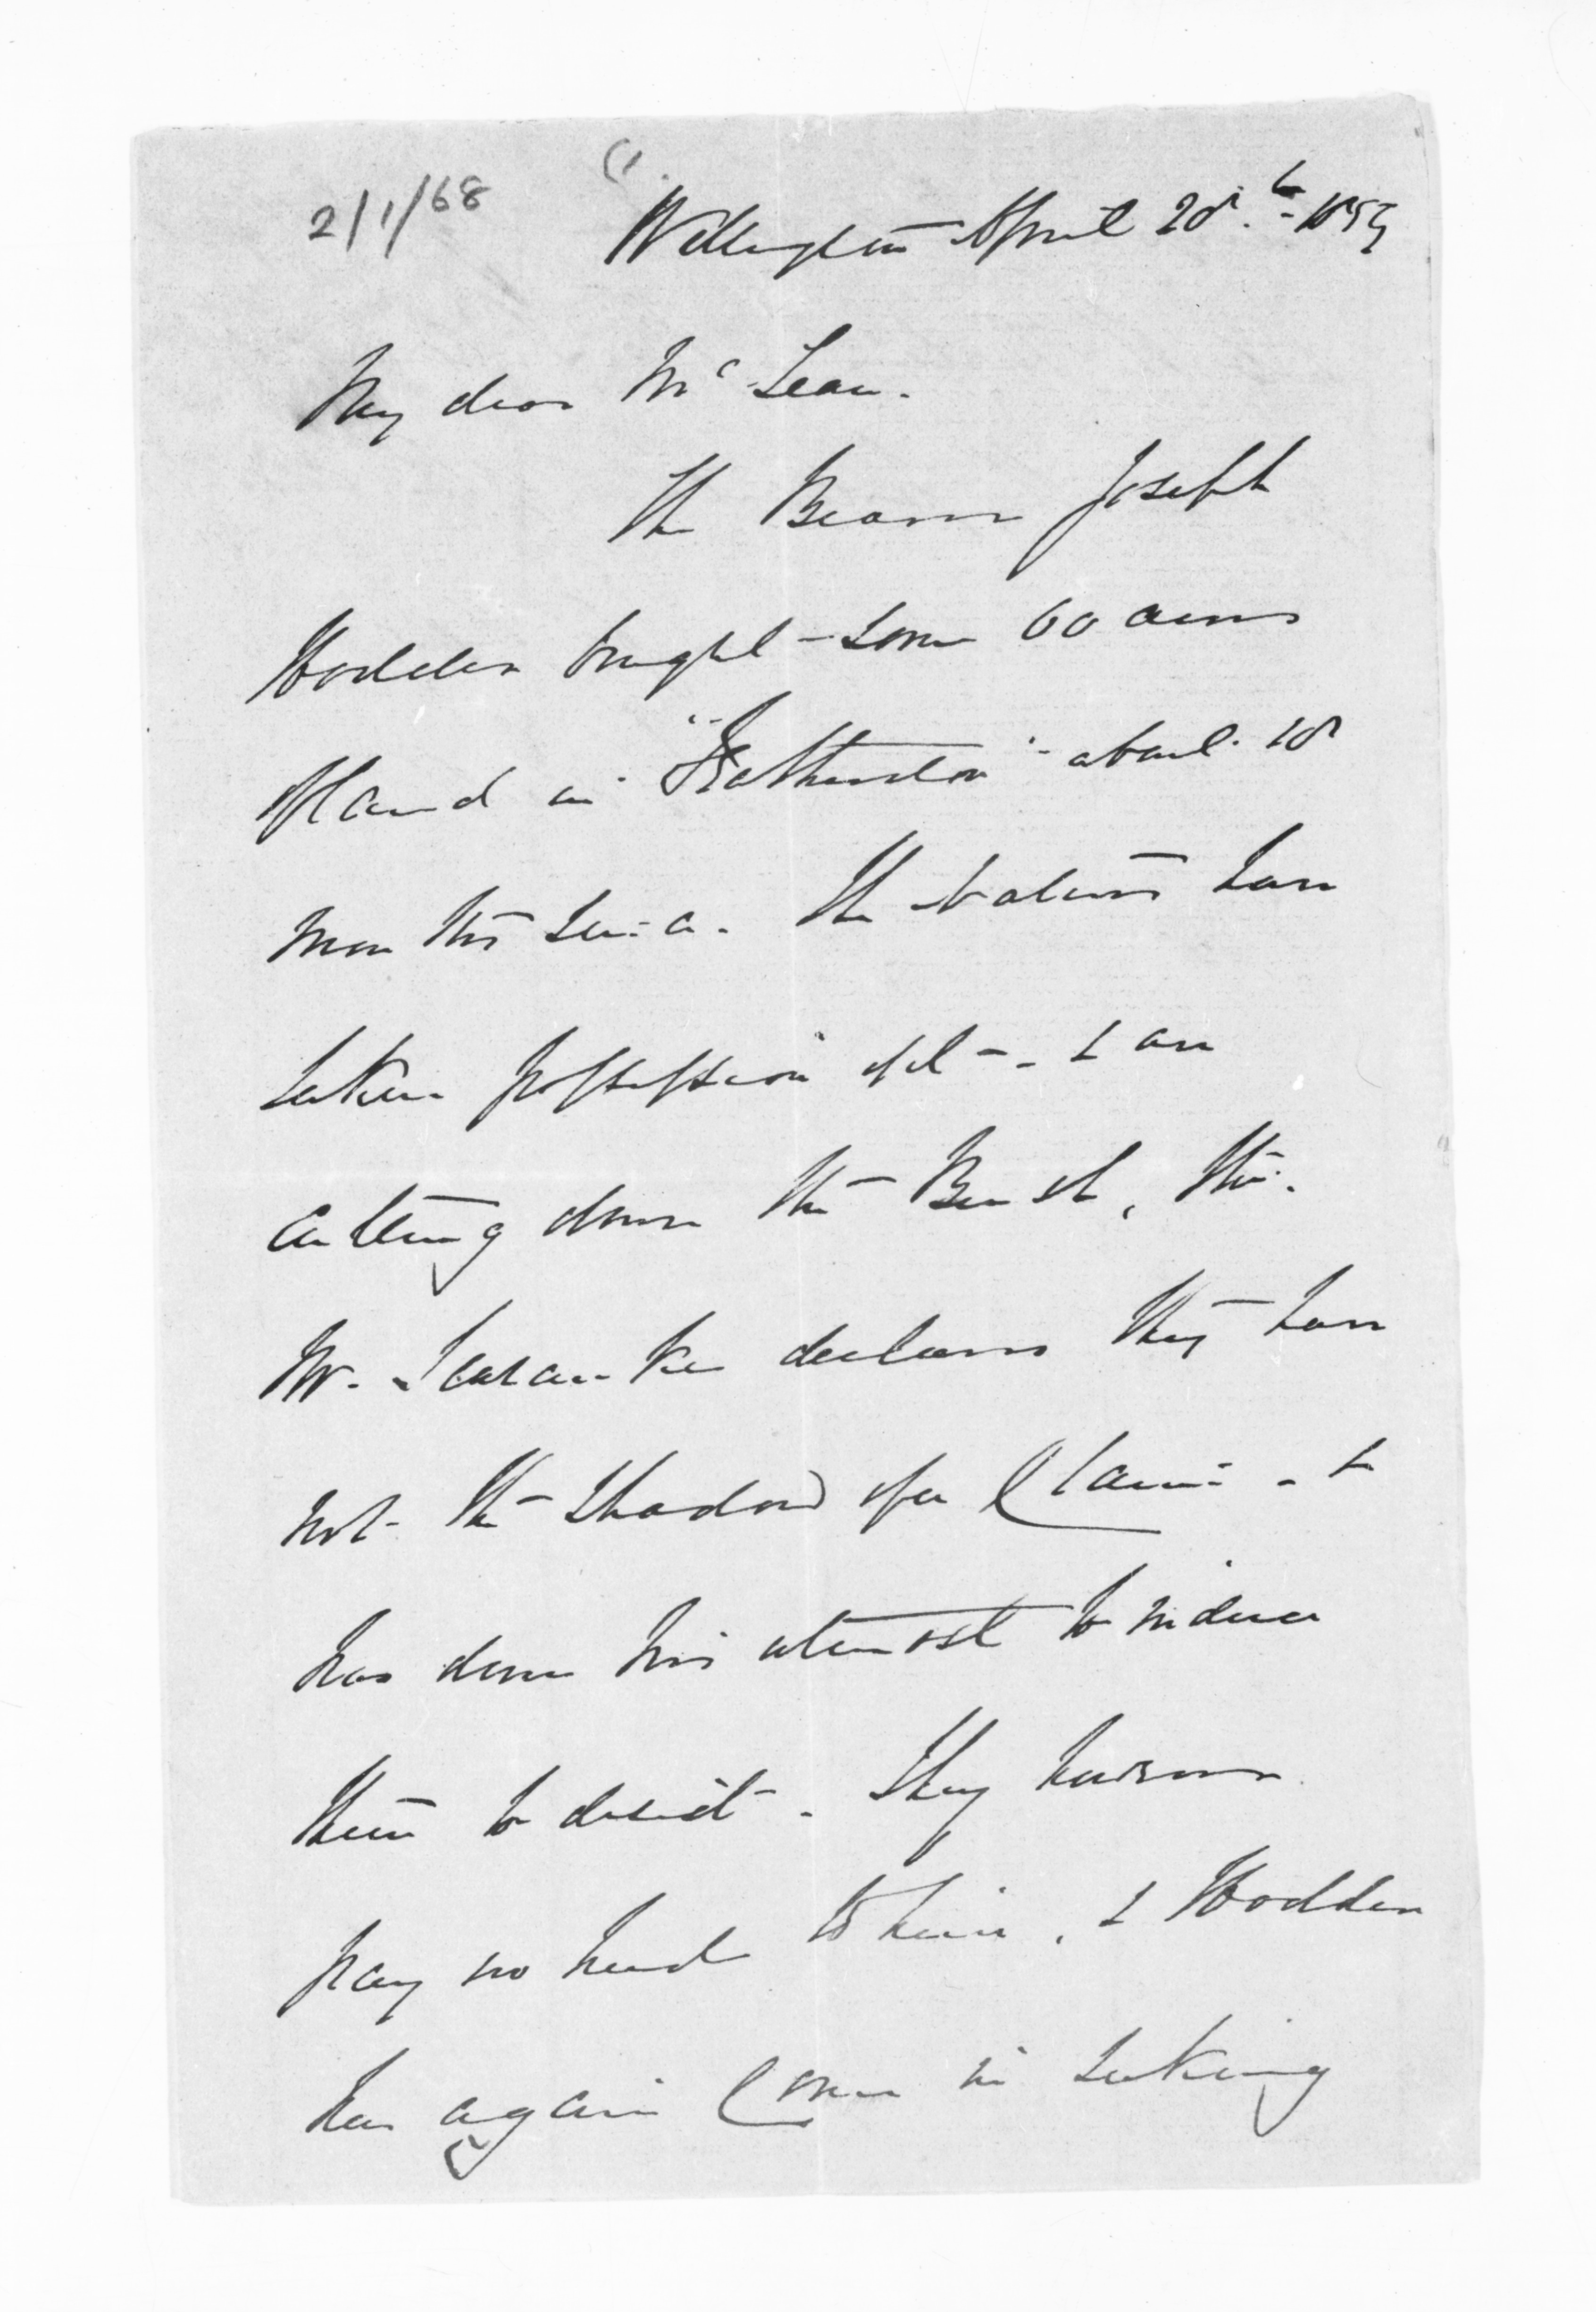 2/1/68
Wellington April 28th 1859
My dear McLean.
The Bearer Joseph
Hodder bought some 60 acres
of land in "Featherston" about 18
months since. The Natives have
taken possession of it - & are
cutting down the Bush, tho'.
Mr. Searancke declares they have
not the shadow of a Claim - &
has done his utmost to induce
them to desist. They however
pay no heed to him, & Hodder
has again come in seeking